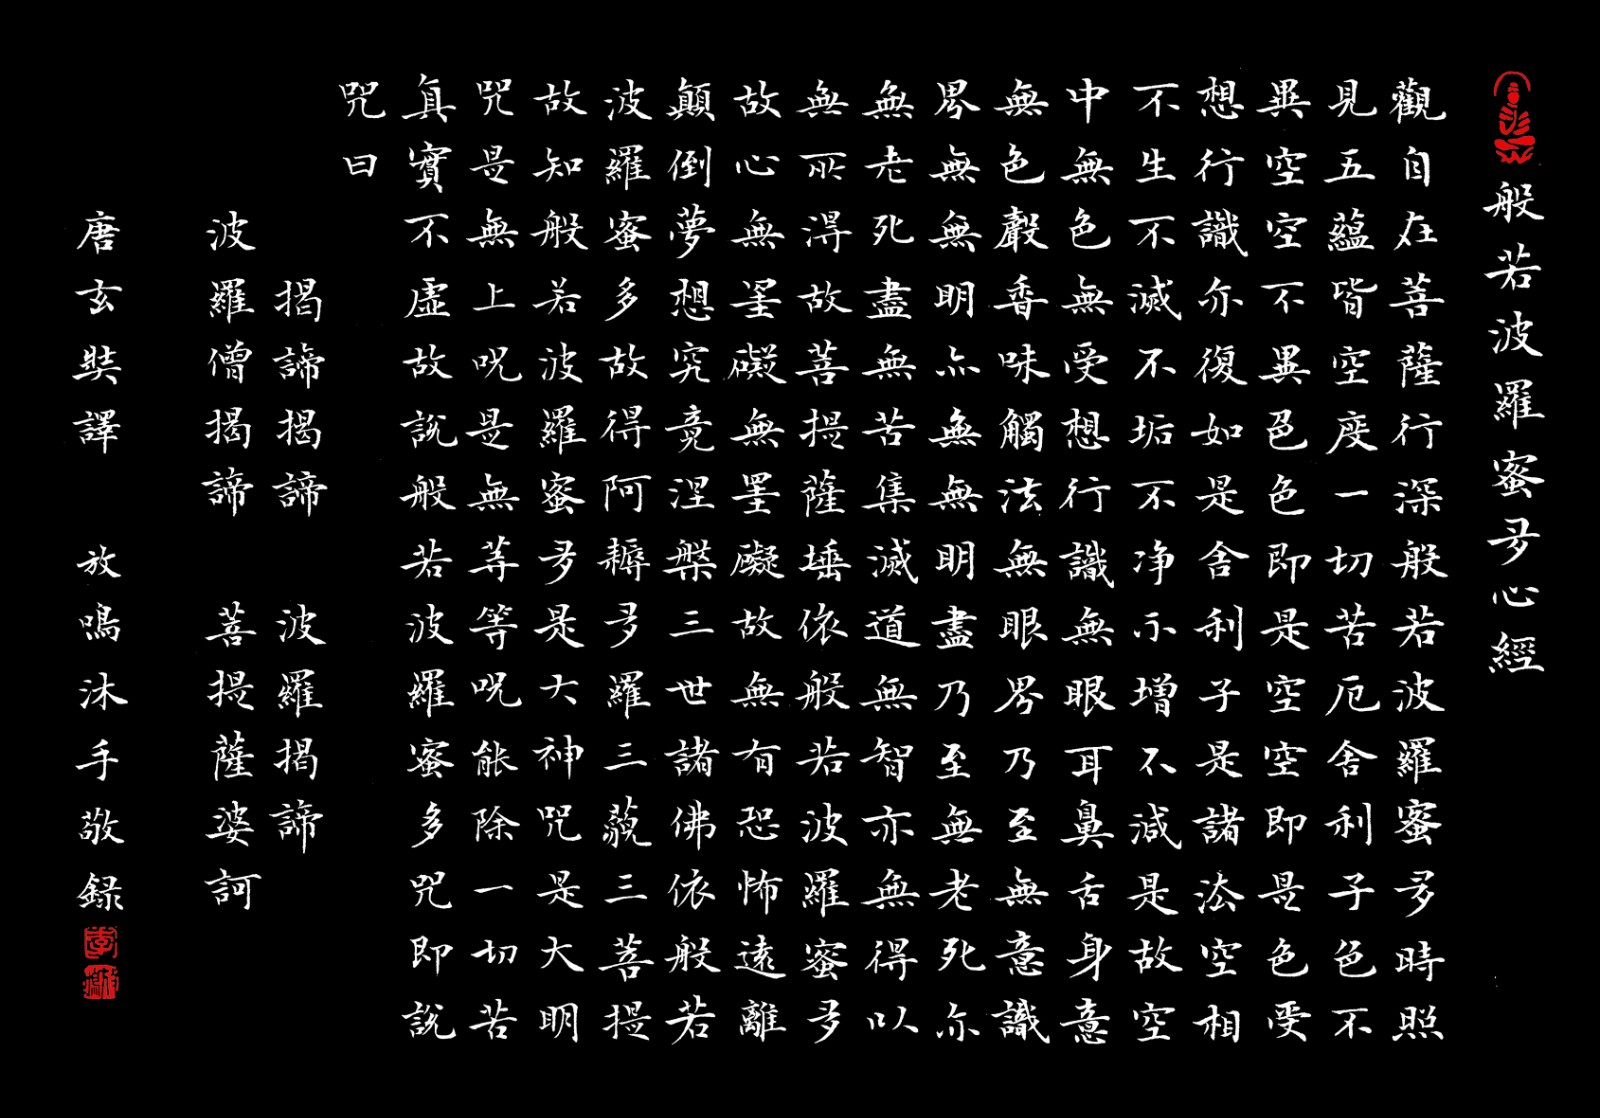 般若波羅蜜多心經
觀自在菩薩行深般若波羅蜜多時照
見五蘊皆空度一切苦厄舍利子色不
異空空不異色色即是空空即是色受
想行識亦復如是舍利子是諸法空相
不生不滅不垢不净不增不減是故空
中無色無受想行識無眼耳鼻舌身意
無色聲香味觸法無眼界乃至無意識
界無無明亦無無明盡乃至無老死亦
無老死盡無苦集滅道無智亦無得以
無所得故菩提薩埵依般若波羅蜜多
故心無罣礙無罣礙故無有恐怖遠離
顛倒夢想究竟涅槃三世諸佛依般若
波羅蜜多故得阿耨多羅三藐三菩提
故知般若波羅蜜多是大神咒是大明
咒是無上呪是無等等呪能除一切苦
真實不虛故說般若波羅蜜多咒即說
咒曰
揭諦揭諦 波羅揭諦
波羅僧揭諦 菩提薩婆訶
唐玄奘譯 放鳴沐手敬録